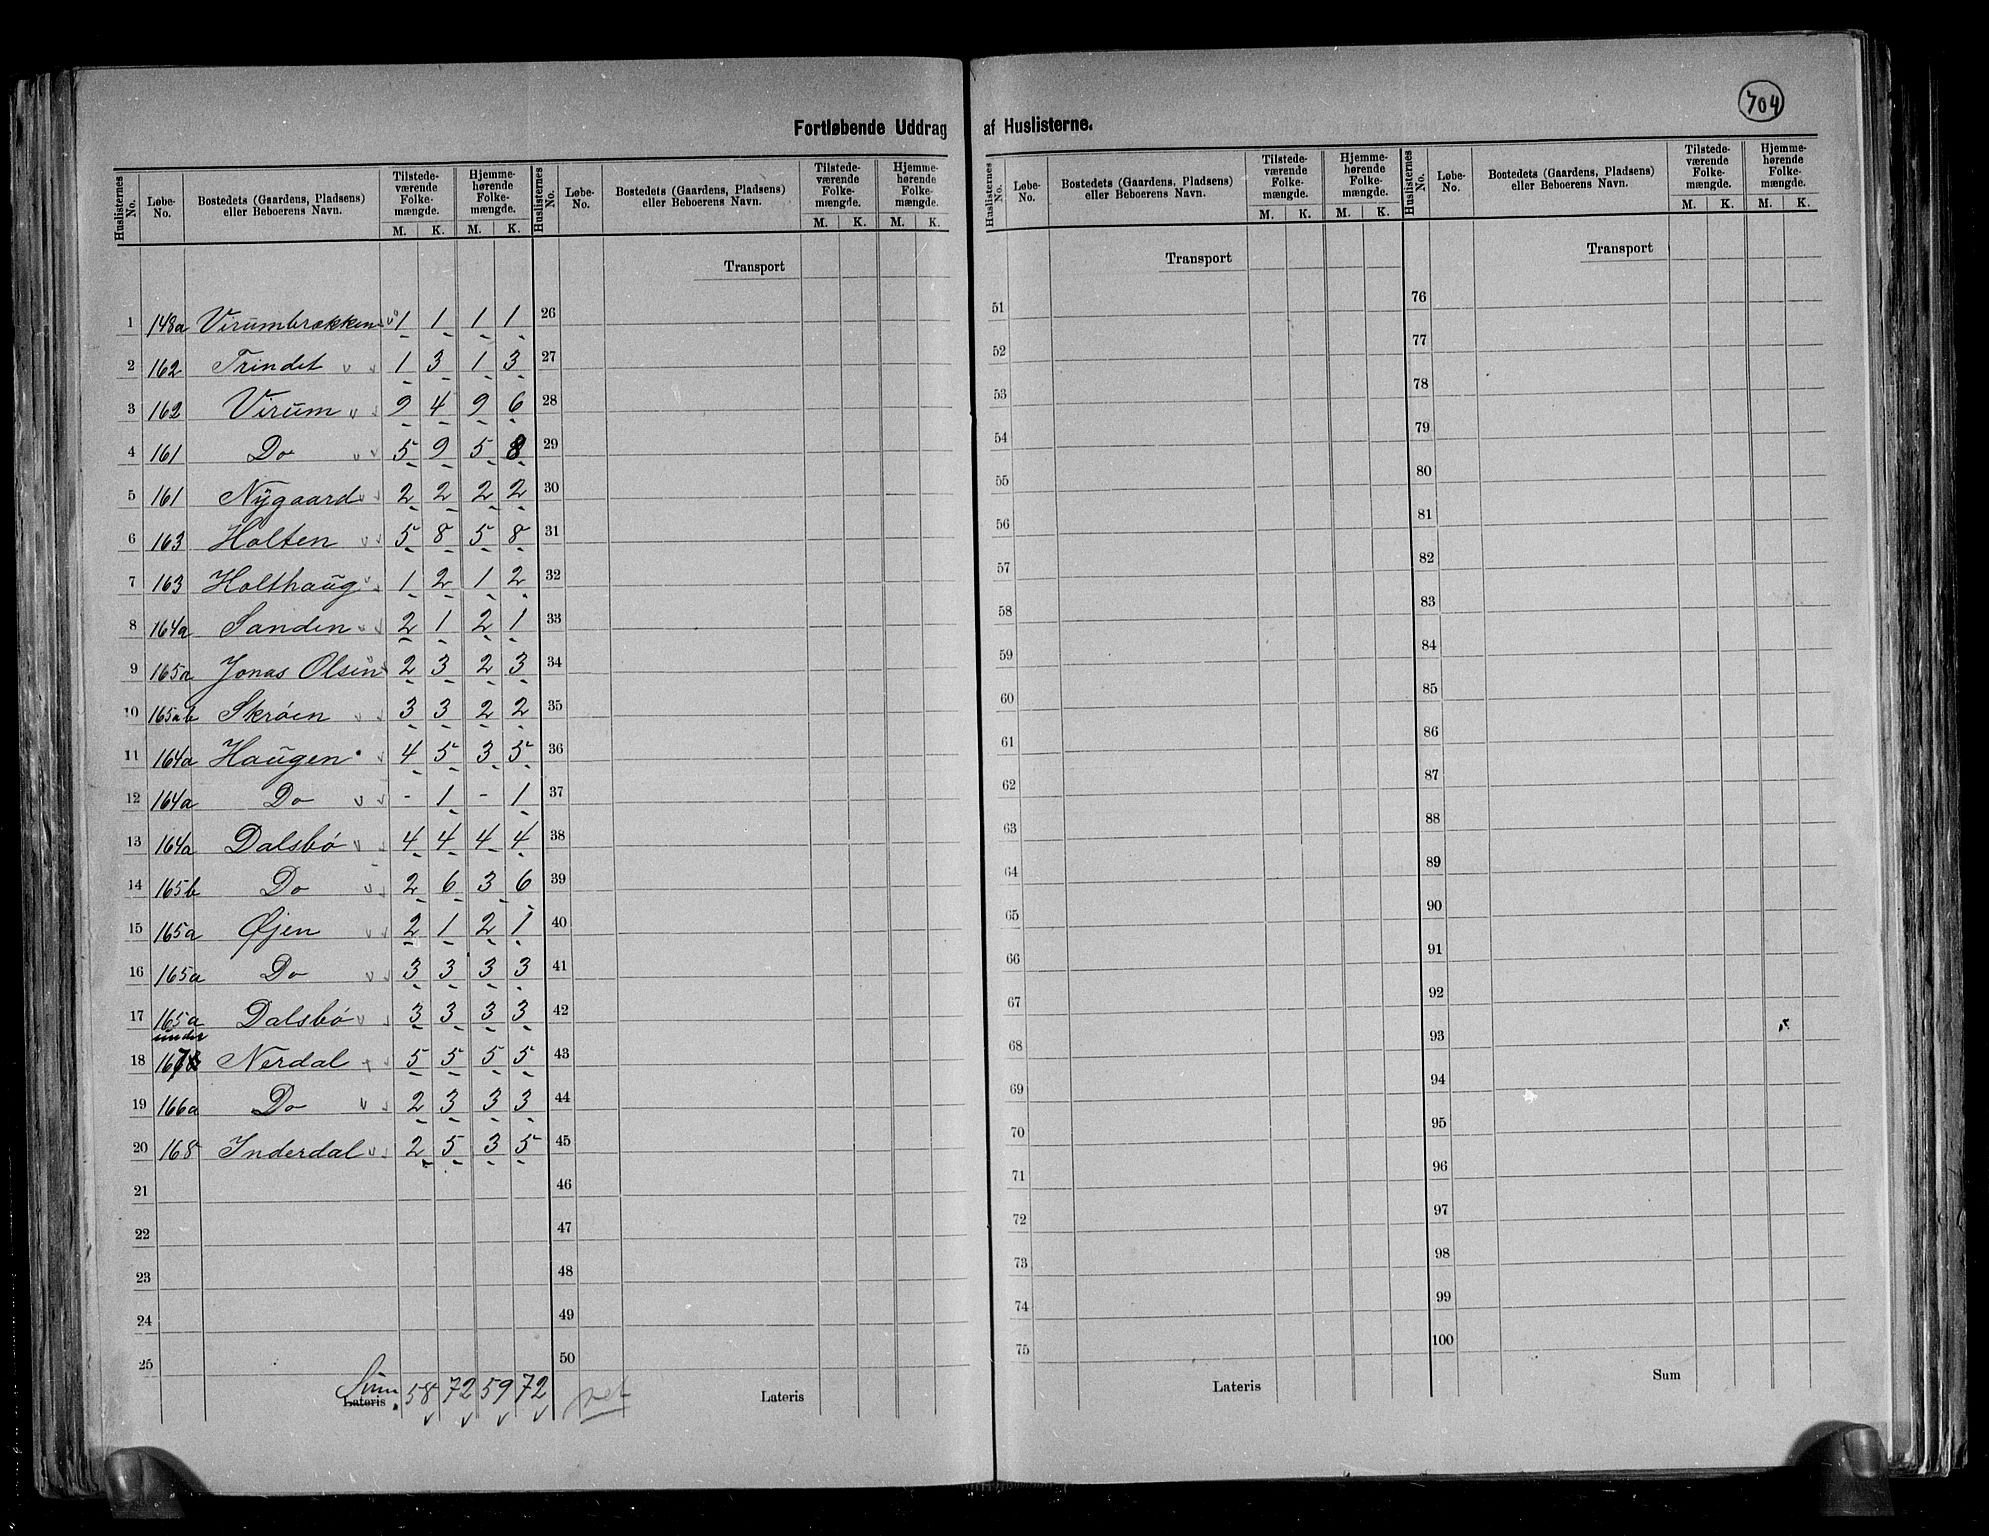 704
Fortløbende Uddrag af Huslisterne.
Huslisternes No. Løbe-No. Bostedets (Gaardens, Pladsens) eller Beboerens Navn. Tilstedeværende Folkemængde. M. K. Hjemmehørende Folkemængde. M. K.
Huslisternes No. Løbe-No. Bostedets (Gaardens, Pladsens) eller Beboerens Navn. Tilstedeværende Folkemængde. M. K. Hjemmehørende Folkemængde. M. K.
Huslisternes No. Løbe-No. Bostedets (Gaardens, Pladsens) eller Beboerens Navn. Tilstedeværende Folkemængde. M. K. Hjemmehørende Folkemængde. M. K.
Huslisternes No. Løbe-No. Bostedets (Gaardens, Pladsens) eller Beboerens Navn. Tilstedeværende Folkemængde. M. K. Hjemmehørende Folkemængde. M. K.
Transport Transport Transport
1 148a Virumbrækken 1 1 1 1 26 51 76
2 162 Trindet 1 3 1 3 27 52 77
3 162 Virum 9 4 9 6 28 53 78
4 161 Do 5 9 5 8 29 54 79
5 161 Nygaard 2 2 2 2 30 55 80
6 163 Holten 5 8 5 8 31 56 81
7 163 Holthaug 1 2 1 2 32 57 82
8 164a Sanden 2 1 2 1 33 58 83
9 165a Jonas Olsen 2 3 2 3 34 59 84
10 165ab Skrøen 3 3 2 2 35 60 85
11 164a Haugen 4 5 3 5 36 61 86
12 164a Do - 1 - 1 37 62 87
13 164a Dalsbø 4 4 4 4 38 63 88
14 165b Do 2 6 3 6 39 64 89
15 165a Øjen 2 1 2 1 40 65 90
16 165a Do 3 3 3 3 41 66 91
17 165a Dalsbø 3 3 3 3 42 67 92
under
18 167 Nerdal 5 5 5 5 43 68 93
19 166a Do 2 3 3 3 44 69 94
20 168 Inderdal 2 5 3 5 45 70 95
21 46 71 96
22 47 72 97
23 48 73 98
24 49 74 99
25 50 75 100
Sum 58 72 59 72
Lateris Lateris Lateris Sum